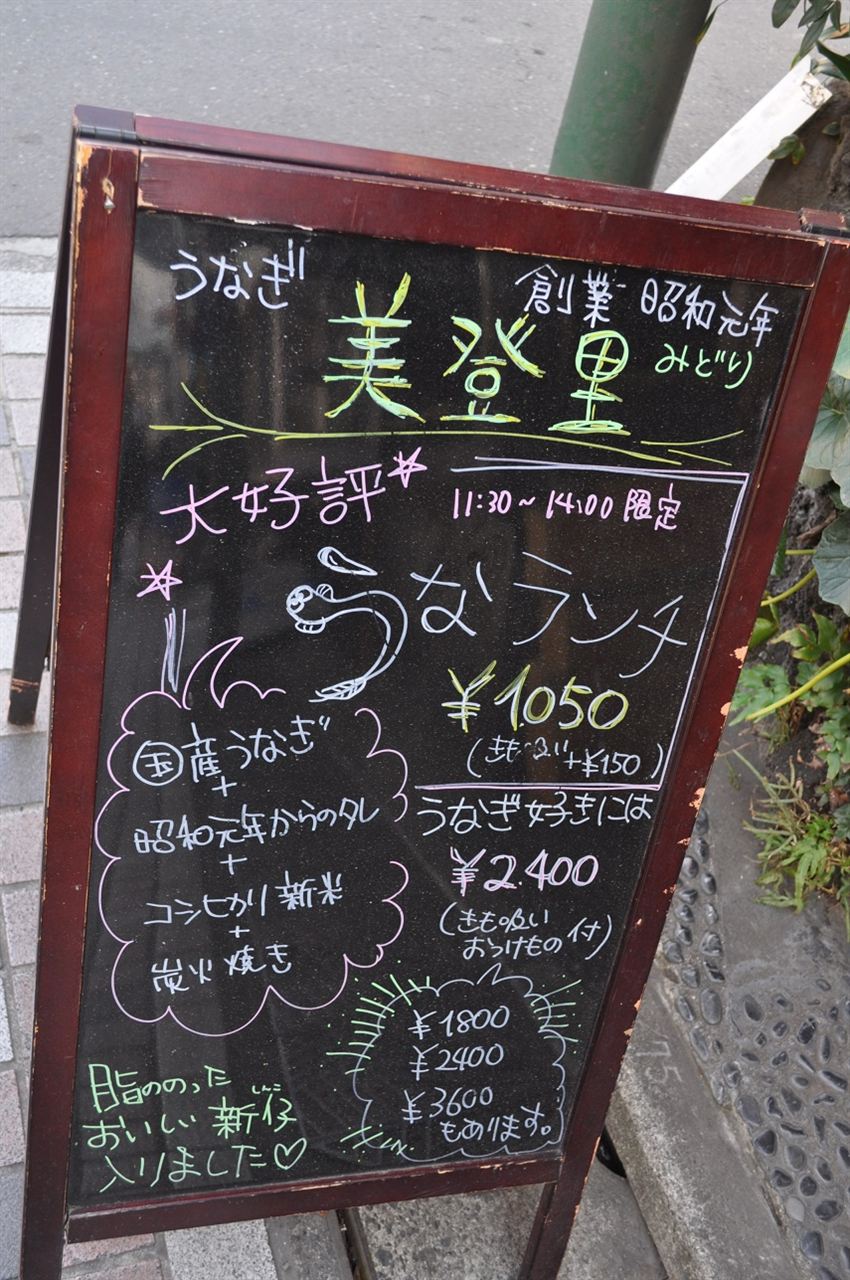 うなぎ
創業 昭和元年
美登里 みどり
大好評
11:30~14:00 限定
うなランチ
¥1050
(きも吸い+¥150)
国産うなぎ
+
昭和元年からのタレ
+
コシヒカリ新米
+
炭火焼き
うなぎ好きには
¥2.400
(きも吸い
おつけもの 付)
¥1800
¥2400
¥3600
もあります。
脂ののった
おいしい新仔
しんこ
入りました♡